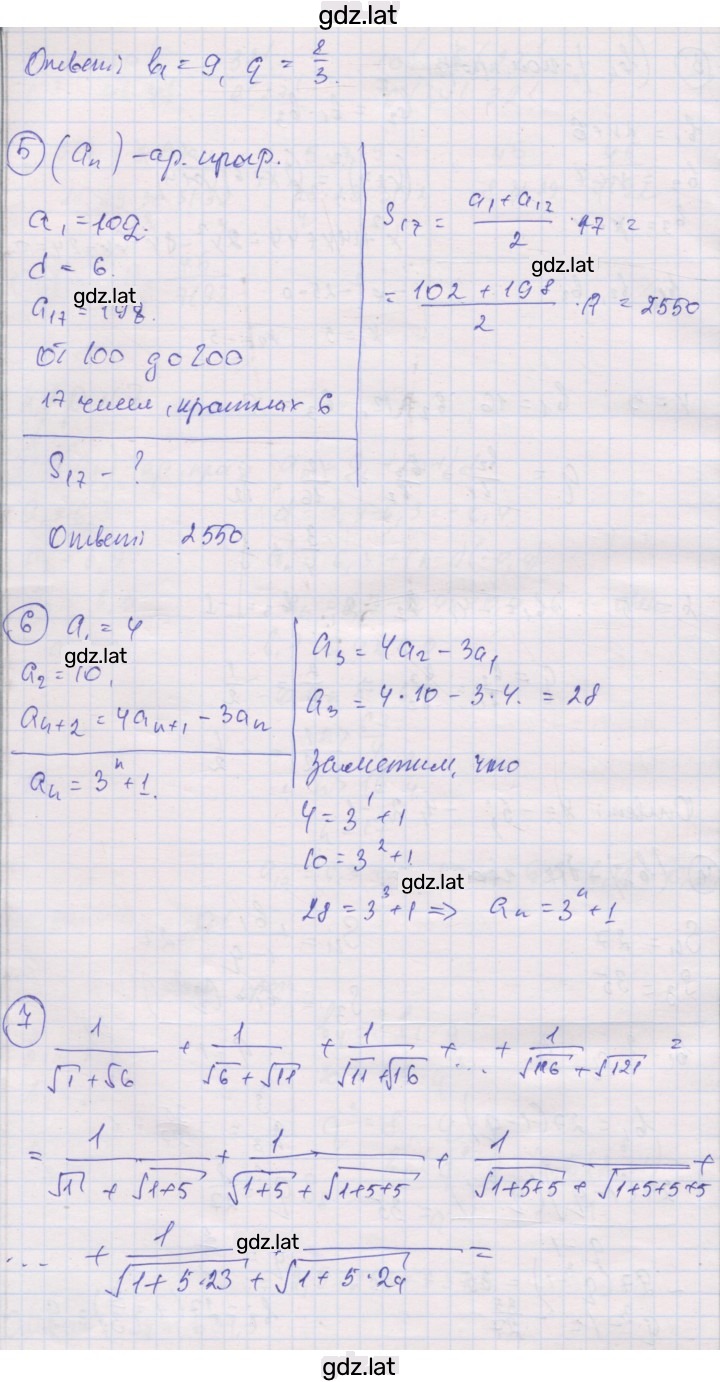 gdz.lat
Ответ: b₁ = 9, q = 2/3.
5 (aₙ) – ар. прогр.
a₁ = 102.
d = 6.
gdz.lat
a₁₇ = 198.
от 100 до 200
17 чисел, кратных 6
S₁₇ – ?
S₁₇ = (a₁ + a₁₂)/2 · 17 =
gdz.lat
= (102 + 198)/2 · 17 = 2550
Ответ: 2550
6 a₁ = 4
gdz.lat
a₂ = 10,
aₙ₊₂ = 4aₙ₊₁ – 3aₙ
aₙ = 3ⁿ + 1.
a₃ = 4a₂ – 3a₁
a₃ = 4·10 – 3·4. = 28
Заметим, что
4 = 3¹ + 1
10 = 3² + 1
gdz.lat
28 = 3³ + 1 ⇒ aₙ = 3ⁿ + 1
7
1/(√1 + √6) + 1/(√6 + √11) + 1/(√11 + √16) + ... + 1/(√116 + √121) =
= 1/(√1 + √(1+5)) + 1/(√(1+5) + √(1+5+5)) + 1/(√(1+5+5) + √(1+5+5+5)) +
... + 1/(√(1+5·23) + √(1+5·24)) =
gdz.lat
gdz.lat